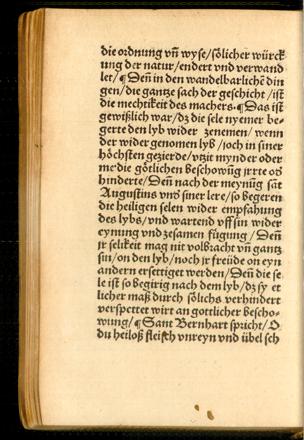 die ordnung vñ wyse/sölicher würck
ung der natur/endert vnd verwand
let/¶Deñ in den wandelbarlichē din
gen/die gantze sach der geschicht/ist
die mechtikeit des machers.¶Das ist
gewißlich war/dz die sele nyemer be-
gerte den lyb wider zenemen/wenn
der wider genomen lyb/joch in siner
höchsten gezierde/vtzit mynder oder
me die götlichen beschowūg jrrte od
hinderte/Deñ nach der meynūg sāt
Augustins vñ siner lere/so begeren
die heiligen selen wider empfahung
des lybs/vnd wartend vff sin wider
eynung vnd zesamen fügung/Deñ
jr selikeit mag nit volbracht vñ gantz
sin/on den lyb/noch jr freüde on eyn
andern ersettiget werden/Deñ die se-
le ist so begirig nach dem lyb/dz sy et
licher maß durch sölichs verhindert
verspettet wirt an gottlicher bescho-
wung/¶Sant Bernhart spricht/O
du heiloß fleisch vnreyn vnd übel sch